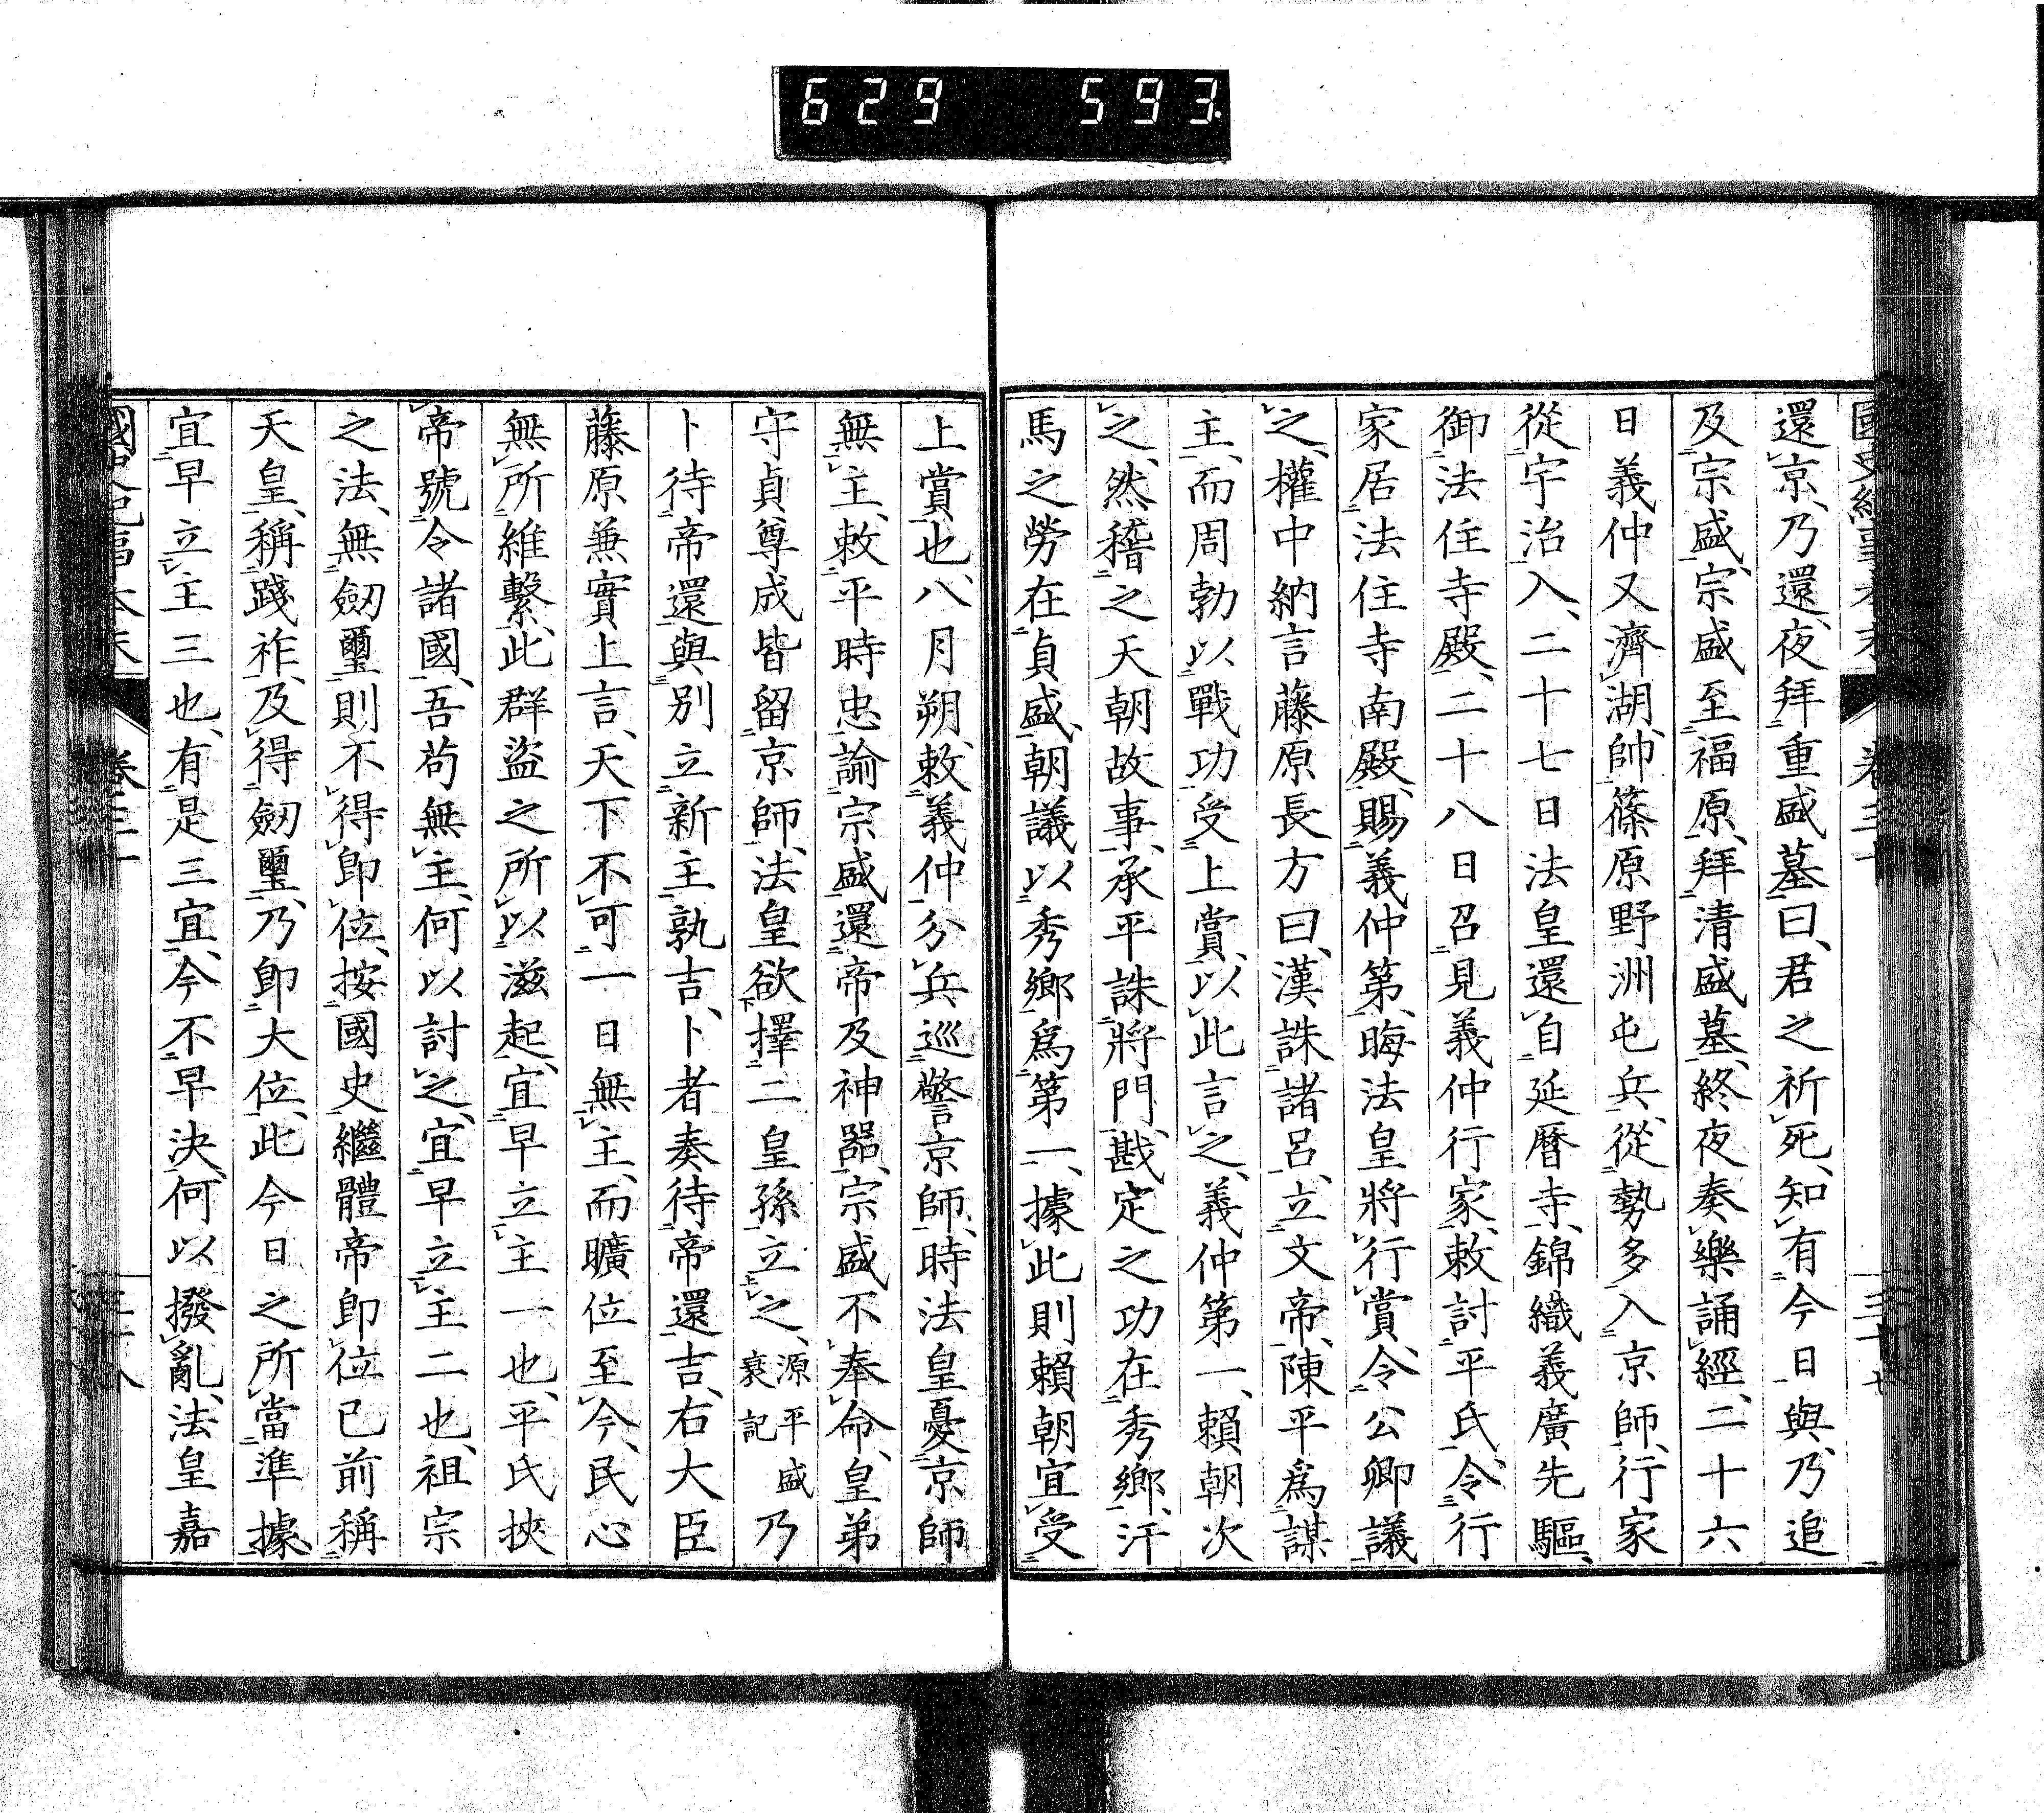 629 593.
還京、乃還、夜拜重盛墓曰、君之祈死、知有今日與、乃追
及宗盛、宗盛至福原、拜清盛墓、終夜奏樂誦經、二十六
日義仲又濟湖、帥篠原野洲屯兵、從勢多入京師、行家
從宇治入、二十七日法皇還自延曆寺、錦織義廣先驅、
御法住寺殿、二十八日召見義仲行家、敕討平氏、令行
家居法住寺南殿、賜義仲第、晦法皇將行賞、令公卿議
之、權中納言藤原長方曰、漢誅諸呂、立文帝、陳平爲謀
主、而周勃以戰功受上賞、以此言之、義仲第一、賴朝次
之、然稽之天朝故事、承平誅將門、戡定之功在秀鄉、汗
馬之勞在貞盛、朝議以秀鄉爲第一、據此則賴朝宜受
上賞也、八月朔、敕義仲分兵巡警京師、時法皇憂京師
無主、敕平時忠諭宗盛還帝及神器、宗盛不奉命、皇弟
守貞尊成皆留京師、法皇欲擇二皇孫立之、源平盛衰記乃
卜待帝還與別立新主孰吉、卜者奏待帝還吉、右大臣
藤原兼實上言、天下不可一日無主、而曠位至今、民心
無所維繫、此群盜之所以滋起、宜早立主一也、平氏挾
帝號令諸國、吾苟無主、何以討之、宜早立主二也、祖宗
之法、無劔璽則不得卽位、按國史繼體帝卽位已前稱
天皇、稱踐祚、及得劔璽、乃卽大位、此今日之所當準據
宜早立主三也、有是三宜、今不早決、何以撥亂、法皇嘉